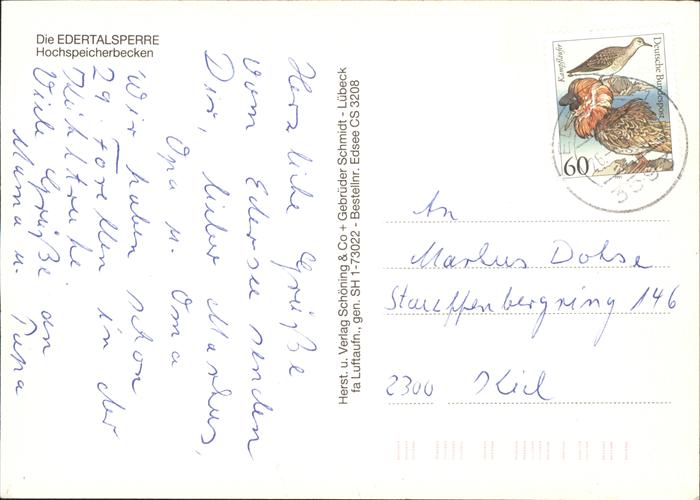 Die EDERTALSPERRE
Hochspeicherbecken
Herzliche Grüße
vom Edersee senden
Dir, lieber Markus,
Opa u. Oma
Wir haben schon
29 Forellen in der
Kühltruhe
Viele Grüße an
Mama u. Papa
Herst. u. Verlag Schöning & Co + Gebrüder Schmidt - Lübeck
fa Luftaufn., gen. SH 1-73022 - Bestellnr. Edsee CS 3208
Kampfläufer
Deutsche Bundespost
60
An
Markus Dohse
Stauffenbergring 146
2300 Kiel